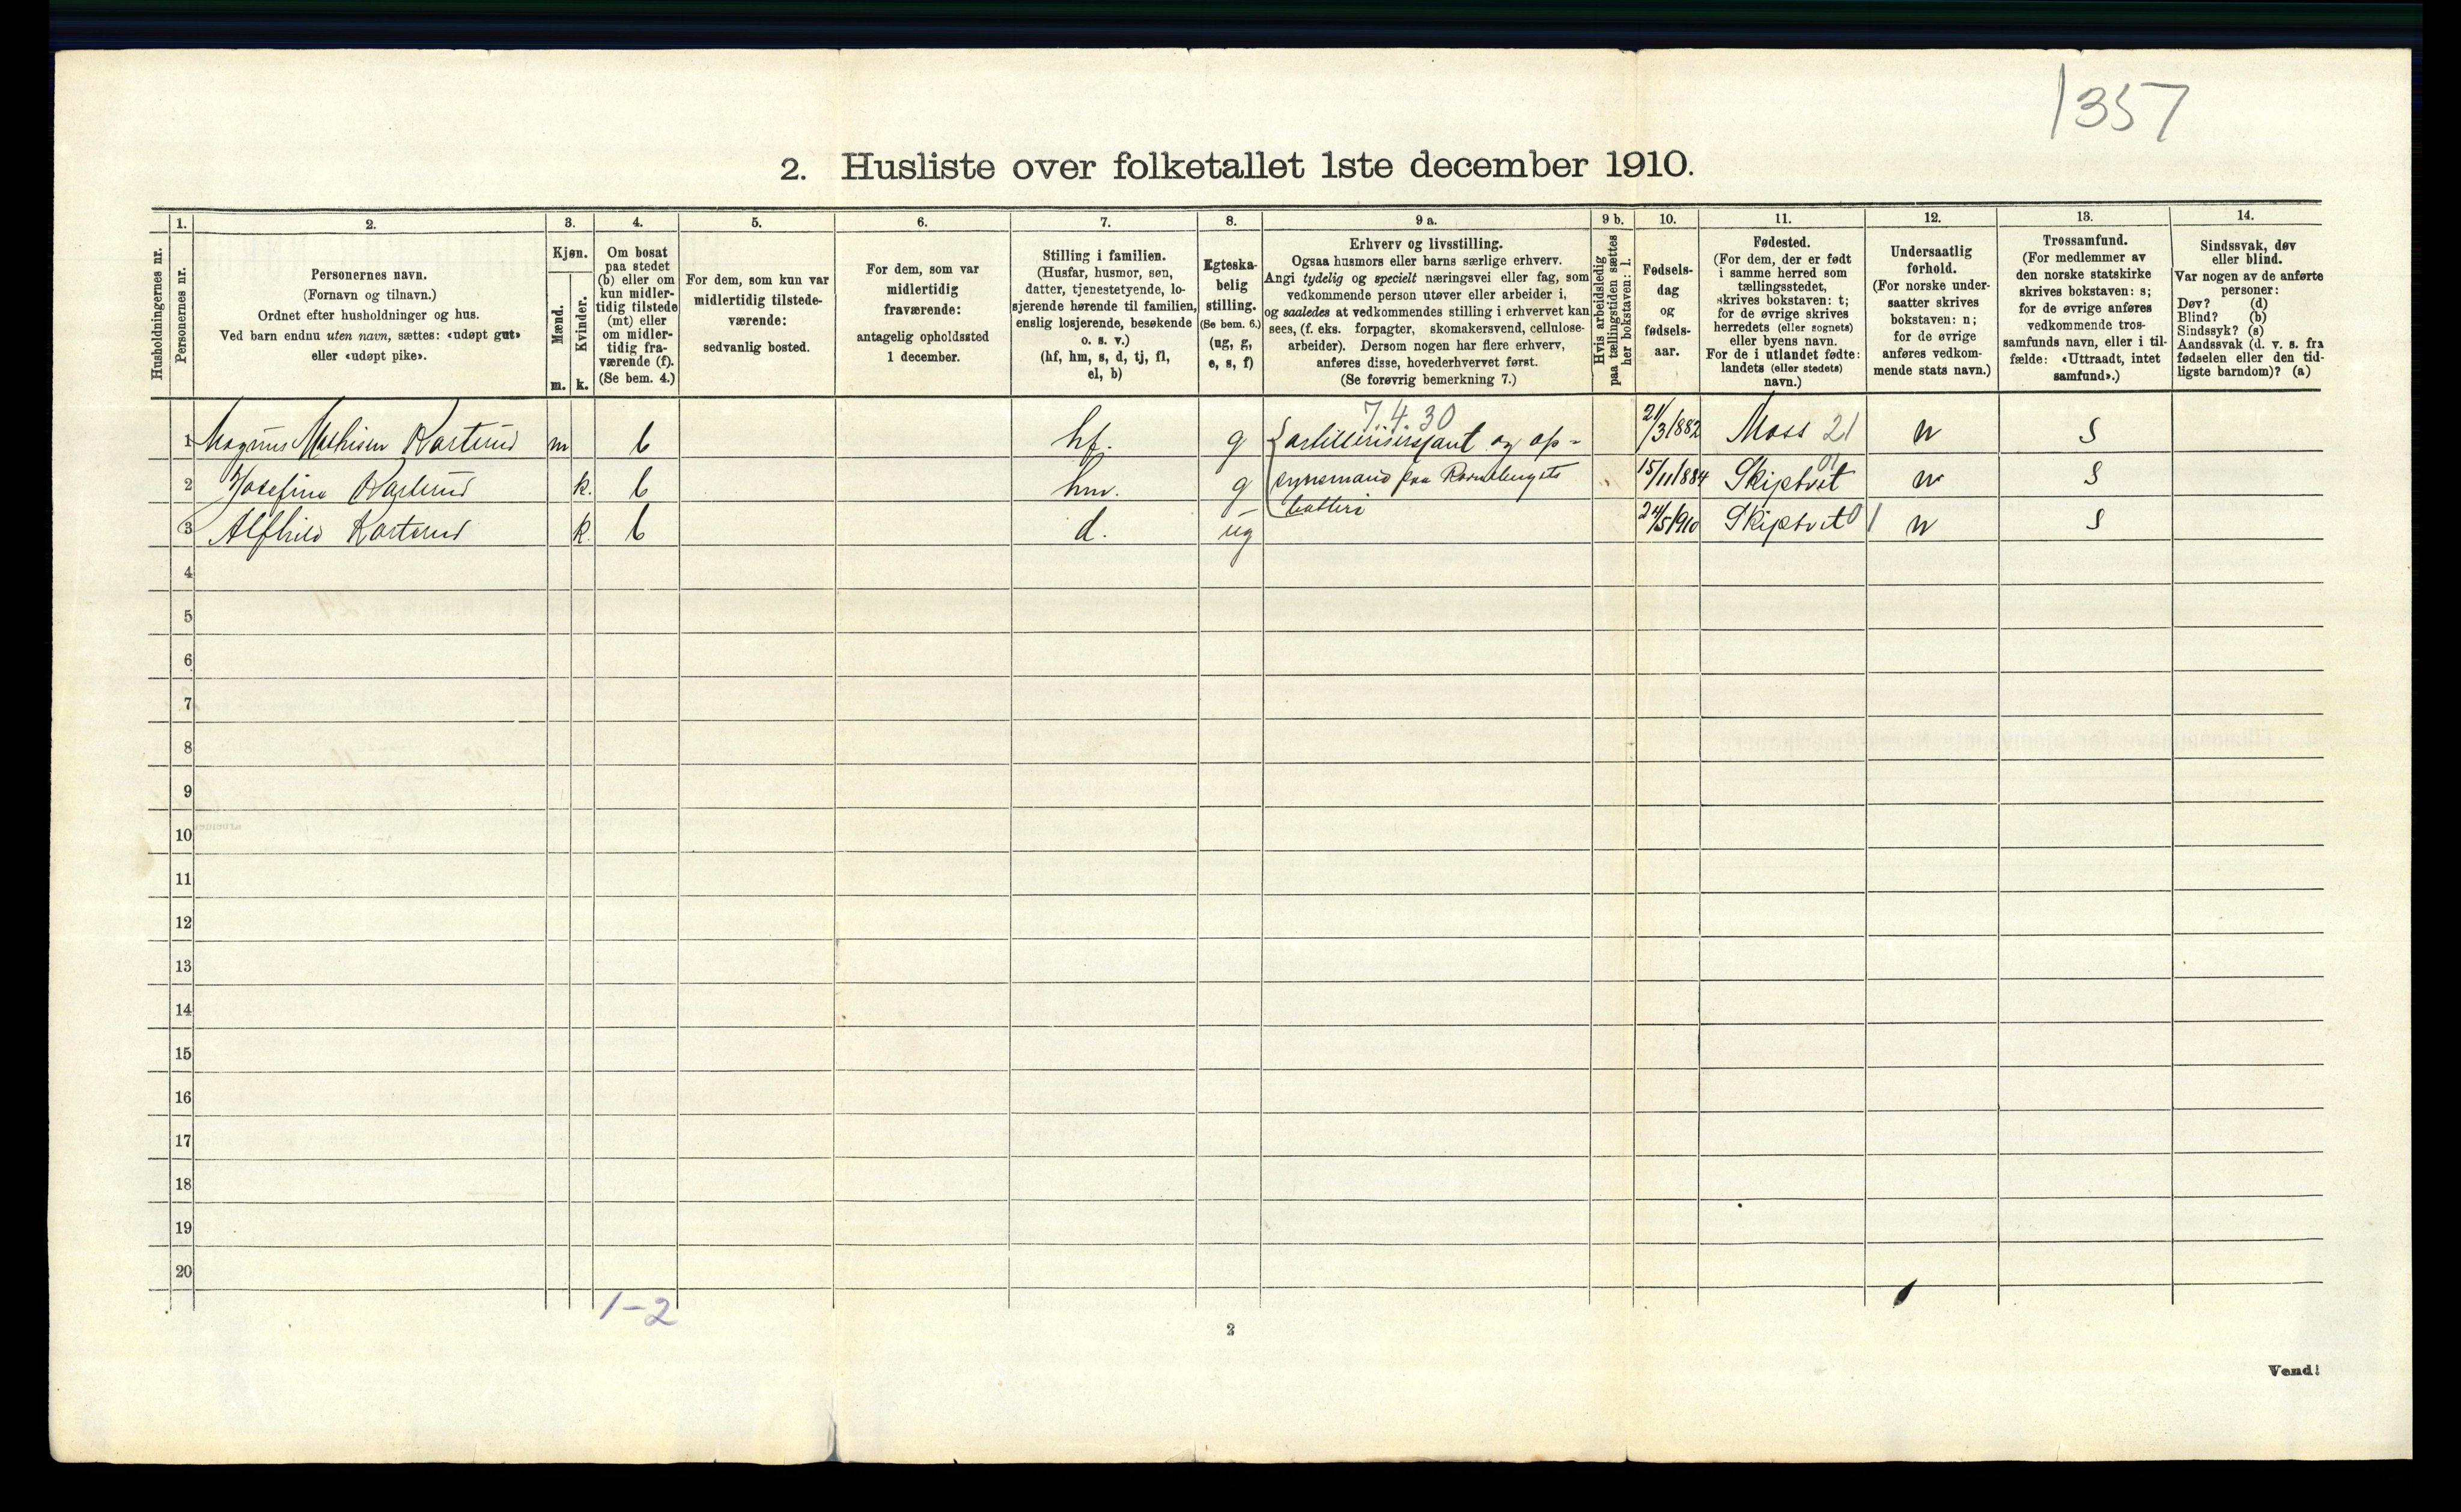 1357
2. Husliste over folketallet 1ste december 1910.
Husholdningernes nr.
1.
Personernes nr.
2.
Personernes navn.
(Fornavn og tilnavn.)
Ordnet efter husholdninger og hus.
Ved barn endnu uten navn, sættes: «udøpt gut»
eller «udøpt pike».
3.
Kjøn.
Mænd.
m.
Kvinder.
k.
4.
Om bosat
paa stedet
(b) eller om
kun midler-
tidig tilstede
(mt) eller
om midler-
tidig fra-
værende (f).
(Se bem. 4.)
5.
For dem, som kun var
midlertidig tilstede-
værende:
sedvanlig bosted.
6.
For dem, som var
midlertidig
fraværende:
antagelig opholdssted
1 december.
7.
Stilling i familien.
(Husfar, husmor, søn,
datter, tjenestetyende, lo-
sjerende hørende til familien,
enslig losjerende, besøkende
o. s. v.)
(hf, hm, s, d, tj, fl,
el, b)
8.
Egteska-
belig
stilling.
(Se bem. 6.)
(ug, g,
e, s, f)
9 a.
Erhverv og livsstilling.
Ogsaa husmors eller barns særlige erhverv.
Angi tydelig og specielt næringsvei eller fag, som
vedkommende person utøver eller arbeider i,
og saaledes at vedkommendes stilling i erhvervet kan
sees, (f. eks. forpagter, skomakersvend, cellulose-
arbeider). Dersom nogen har flere erhverv,
anføres disse, hovederhvervet først.
(Se forøvrig bemerkning 7.)
9 b.
Hvis arbeidsledig
paa tællingstiden sættes
her bokstaven: l.
10.
Fødsels-
dag
og
fødsels-
aar.
11.
Fødested.
(For dem, der er født
i samme herred som
tællingsstedet,
skrives bokstaven: t;
for de øvrige skrives
herredets (eller sognets)
eller byens navn.
For de i utlandet fødte:
landets (eller stedets)
navn.)
12.
Undersaatlig
forhold.
(For norske under-
saatter skrives
bokstaven: n;
for de øvrige
anføres vedkom-
mende stats navn.)
13.
Trossamfund.
(For medlemmer av
den norske statskirke
skrives bokstaven: s;
for de øvrige anføres
vedkommende tros-
samfunds navn, eller i til-
fælde: «Uttraadt, intet
samfund».)
14.
Sindssvak, døv
eller blind.
Var nogen av de anførte
personer:
Døv? (d)
Blind? (b)
Sindssyk? (s)
Aandssvak (d. v. s. fra
fødselen eller den tid-
ligste barndom)? (a)
7.4.30
1 Magnus Mathisen Karterud m b hf. g artillerisersjant og op- 21/3 1882 Moss 21 n s
2 Josefine Karterud k. b hm. g synsmand paa 15/11 1884 Skiptvet 01 n s
batteri
3 Alfhild Karterud k. b d. ug 24/5 1910 Skiptvet 01 n s
4
5
6
7
8
9
10
11
12
13
14
15
16
17
18
19
20
1-2
2
Vend!